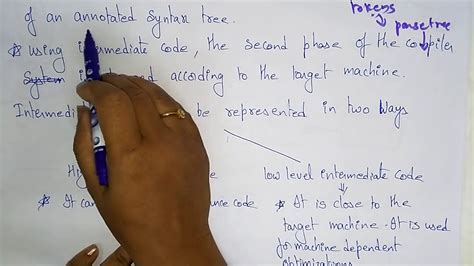 of an annotated syntax tree.
tokens
parsetree
* using code, the second phase of the compiler
System according to the target machine.
be represented in two ways
low level intermediate code
* It can code
* It is close to the
target machine. It is used
for machine dependent
optimizations